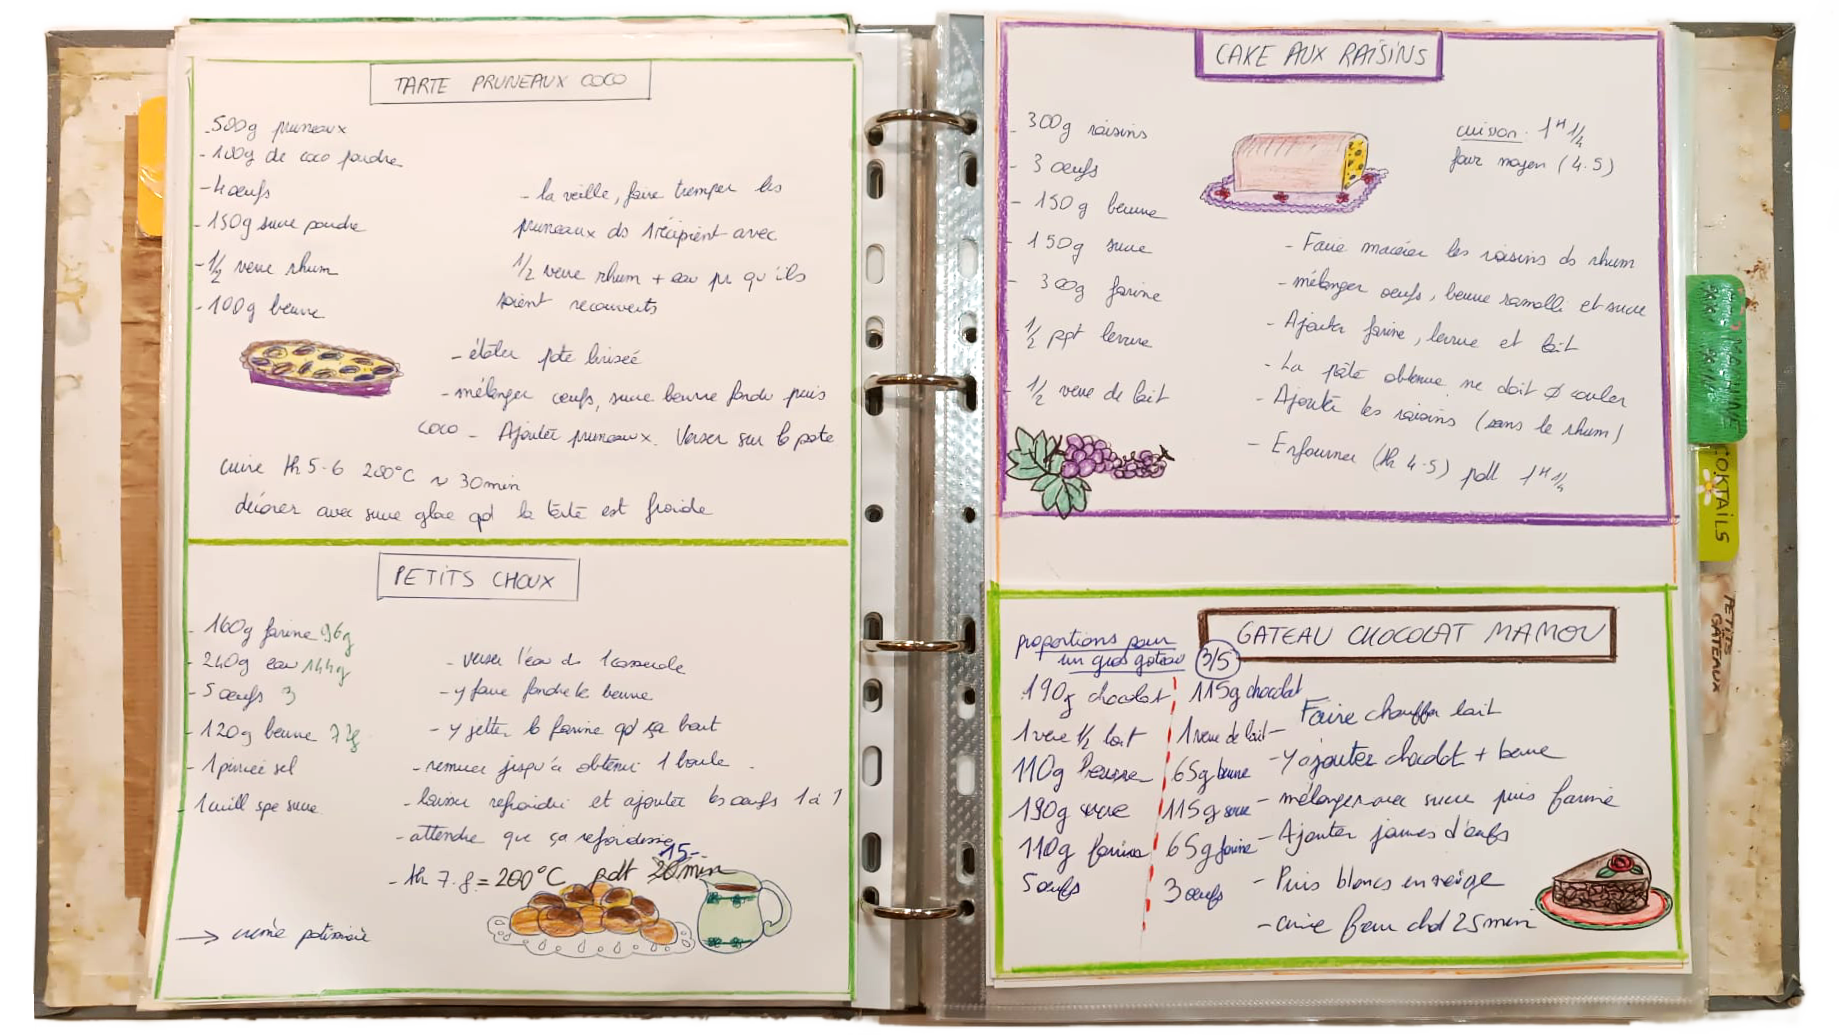 TARTE PRUNEAUX COCO
- 500g pruneaux
- 100g de coco poudre
- 4 oeufs
- 150g sucre poudre
- 1/2 verre rhum
- 100g beurre
- la veille, faire tremper les
pruneaux ds 1 récipient avec
1/2 verre rhum + eau pr qu'ils
soient recouverts
- étaler pate brisée
- mélanger oeufs, sucre beurre fondu puis
coco - Ajouter pruneaux. Verser sur la pate
cuire th 5-6 200°C ~ 30min
décorer avec sucre glace qd la tarte est froide
PETITS CHOUX
- 160g farine 96g
- 240g eau 144g
- 5 oeufs 3
- 120g beurre 72g
- 1 pincée sel
- 1 cuill spe sucre
- verser l'eau ds 1 casserole
- y faire fondre le beurre
- y jetter la farine qd ça bout
- remuer jusqu'à obtenir 1 boule.
- laisser refroidir et ajouter les oeufs 1 à 1
- attendre que ça refroidisse
15-
- th 7.8 = 200°C pdt 20min
→ crème patissière
CAKE AUX RAISINS
- 300g raisins
- 3 oeufs
- 150g beurre
- 150g sucre
- 300g farine
- 1/2 pqt levure
- 1/2 verre de lait
cuisson : 1H 1/4
four moyen (4.5)
- Faire macérer les raisins ds rhum
- mélanger oeufs, beurre ramolli et sucre
- Ajouter farine, levure et lait
- La pâte obtenue ne doit Ø couler
- Ajouter les raisins (sans le rhum)
- Enfourner (th 4-5) pdt 1H 1/4
GATEAU CHOCOLAT MAMOU
proportions pour
un gros gateau
3/5
190g chocolat
1 verre 1/2 lait
110g beurre
190g sucre
110g farine
5 oeufs
115g chocolat
1 verre de lait
65g beurre
115g sucre
65g farine
3 oeufs
- Faire chauffer lait
- Y ajouter chocolat + beurre
- mélanger avec sucre puis farine
- Ajouter jaunes d'oeufs
- Puis blancs en neige
- cuire four chd 25 min
COKTAILS
PETITS
GÂTEAUX